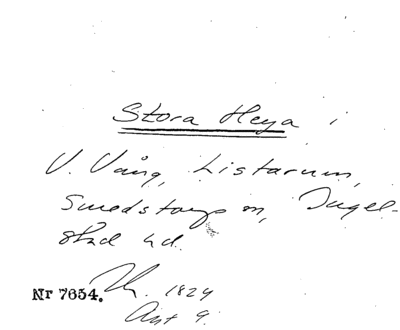 Stora Heya i
V. Vång, Listarum,
Smedstorps sn, Ingel-
stad hd.
Nr 7654. 1824
Akt 9.